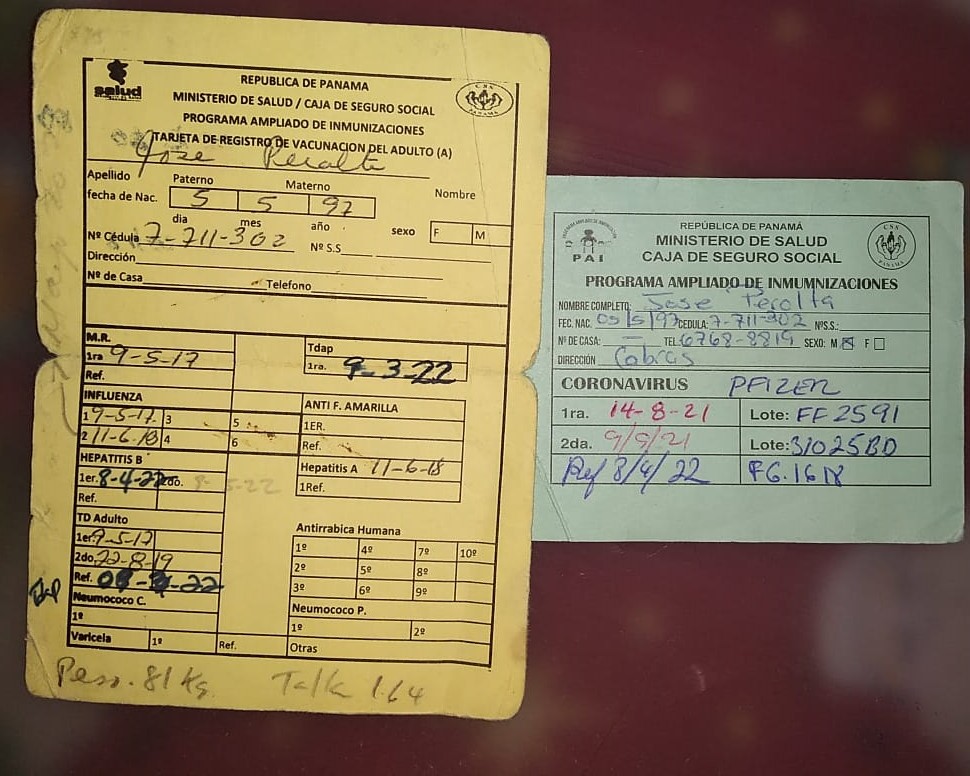 salud
REPUBLICA DE PANAMA
MINISTERIO DE SALUD / CAJA DE SEGURO SOCIAL
PROGRAMA AMPLIADO DE INMUNIZACIONES
TARJETA DE REGISTRO DE VACUNACION DEL ADULTO (A)
C S S
PANAMA
Jose Peralta
Apellido Paterno Materno Nombre
fecha de Nac. 5 5 97
dia mes año sexo F M
Nº Cédula 7-711-302 Nº S.S
Dirección
Nº de Casa Telefono
M.R.
1ra 9-5-17
Ref.
Tdap
1ra. 9-3-22
INFLUENZA
1 9-5-17 3 5
2 11-6-18 4 6
ANTI F. AMARILLA
1ER.
Ref.
HEPATITIS B
1er. 8-4-22 2do.
Ref.
Hepatitis A 11-6-18
1Ref.
TD Adulto
1er 9-5-17
2do 22-8-19
Ref.
Neumococo C.
1º
Varicela 1º Ref.
Antirrabica Humana
1º 4º 7º 10º
2º 5º 8º
3º 6º 9º
Neumococo P.
1º 2º
Otras
Peso. 81 Kg Talla 1.64
PAI
REPÚBLICA DE PANAMÁ
MINISTERIO DE SALUD
CAJA DE SEGURO SOCIAL
C S S
PANAMA
PROGRAMA AMPLIADO DE INMUMNIZACIONES
NOMBRE COMPLETO: Jose Peralta
FEC. NAC. 05/5/97 CEDULA: 7-711-302 NºS.S.:
Nº DE CASA: — TEL. 6768-8819 SEXO: M F
DIRECCIÓN Cabras
CORONAVIRUS PFIZER
1ra. 14-8-21 Lote: FF2591
2da. 9/9/21 Lote: 31025BD
Ref 8/4/22